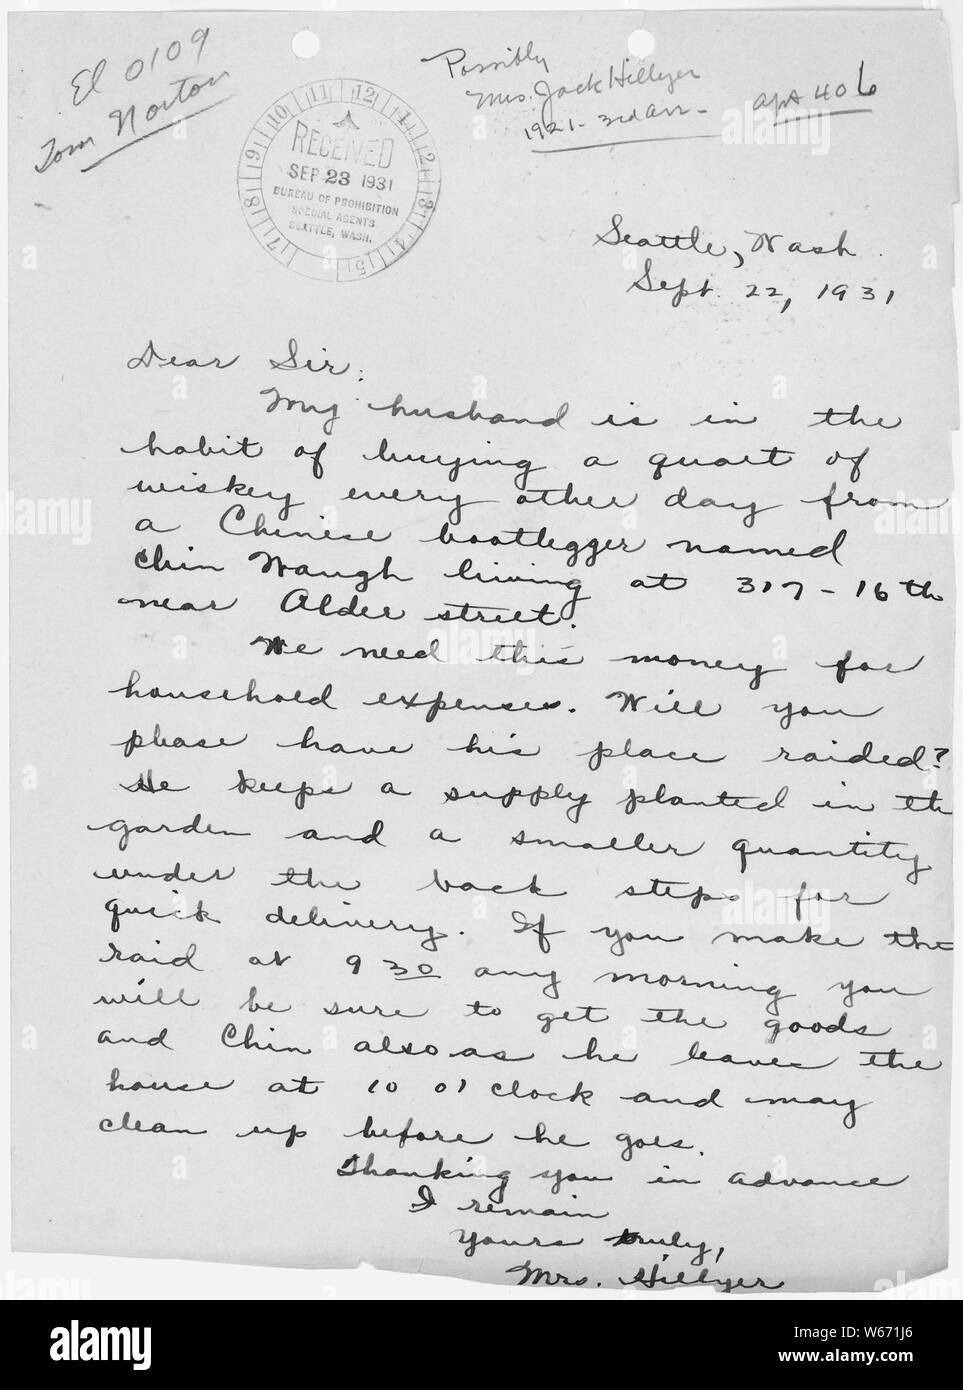 El 0109
Tom Norton
Possibly
Mrs. Jack Hillyer
1921 - 3rd Ave -
Apt 406
RECEIVED
SEP 23 1931
BUREAU OF PROHIBITION
SPECIAL AGENTS
SEATTLE, WASH.
Seattle, Wash.
Sept. 22, 1931
Dear Sir:
My husband is in the
habit of buying a quart of
wiskey every other day from
a Chinese bootlegger named
Chin Waugh living at 317-16th
near Alder street.
We need this money for
household expenses. Will you
please have his place raided?
He keeps a supply planted in the
garden and a smaller quantity
under the back steps for
quick delivery. If you make the
raid at 9 30 any morning you
will be sure to get the goods
and Chin also as he leaves the
house at 10 o'clock and may
clean up before he goes.
Thanking you in advance
I remain
Yours truly,
Mrs. Hillyer
alamy
Image ID: W671J6
www.alamy.com